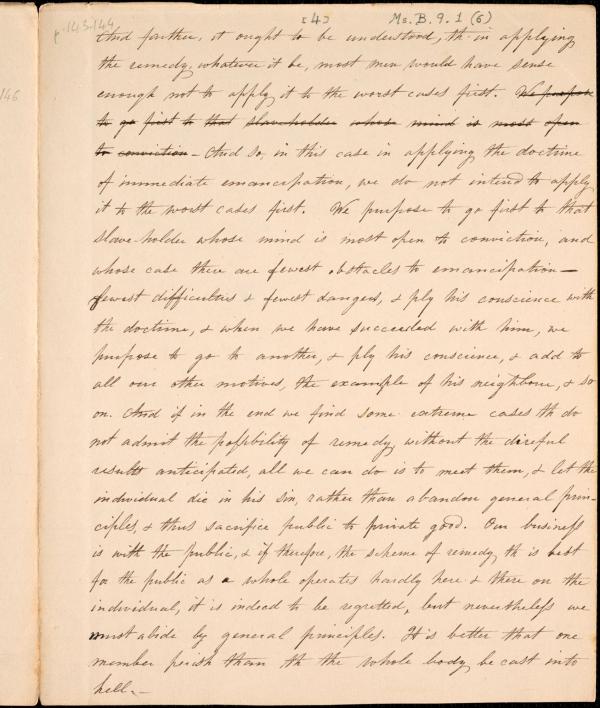 p.143-144
[4]
Ms. B. 9. 1 (6)
146
And farther, it ought to be understood, th. in applying
the remedy, whatever it be, most men would have sense
enough not to apply it to the worst cases first. We purpose
to go first to that slaveholder whose mind is most open
to conviction – And so, in this case in applying the doctrine
of immediate emancipation, we do not intend to apply
it to the worst cases first. We purpose to go first to that
slave-holder whose mind is most open to conviction, and
whose case there are fewest obstacles to emancipation –
fewest difficulties & fewest dangers, & ply his conscience with
the doctrine, & when we have succeeded with him, we
purpose to go to another, & ply his conscience, & add to
all our other motives, the example of his neighbour, & so
on. And if in the end we find some extreme cases th do
not admit the possibility of remedy, without the direful
results anticipated, all we can do is to meet them, & let the
individual die in his sin, rather than abandon general prin-
ciples, & thus sacrifice public to private good. Our business
is with the public, & if therefore, the scheme of remedy th is best
for the public as a whole operates hardly here & there on the
individual, it is indeed to be regretted, but nevertheless we
must abide by general principles. It is better that one
member perish than th the whole body be cast into
hell. –